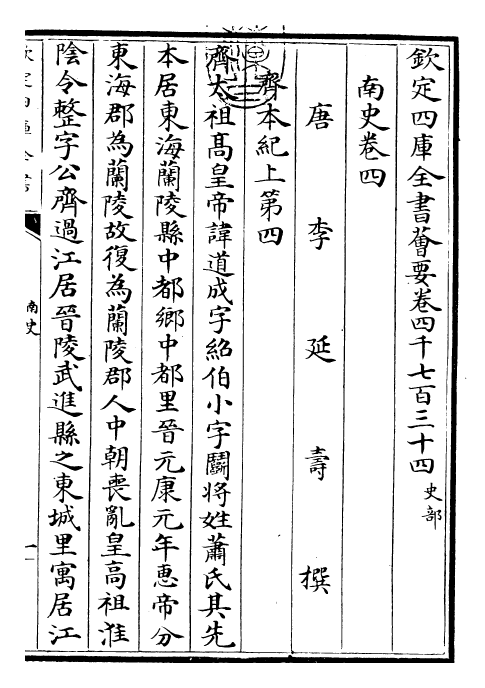 欽定四庫全書薈要卷四千七百三十四 史部
南史卷四
唐 李 延 壽 撰
齊本紀上第四
齊太祖高皇帝諱道成字紹伯小字鬬將姓蕭氏其先
本居東海蘭陵縣中都鄉中都里晉元康元年惠帝分
東海郡為蘭陵故復為蘭陵郡人中朝喪亂皇高祖淮
陰令整字公齊過江居晉陵武進縣之東城里寓居江
南史
一